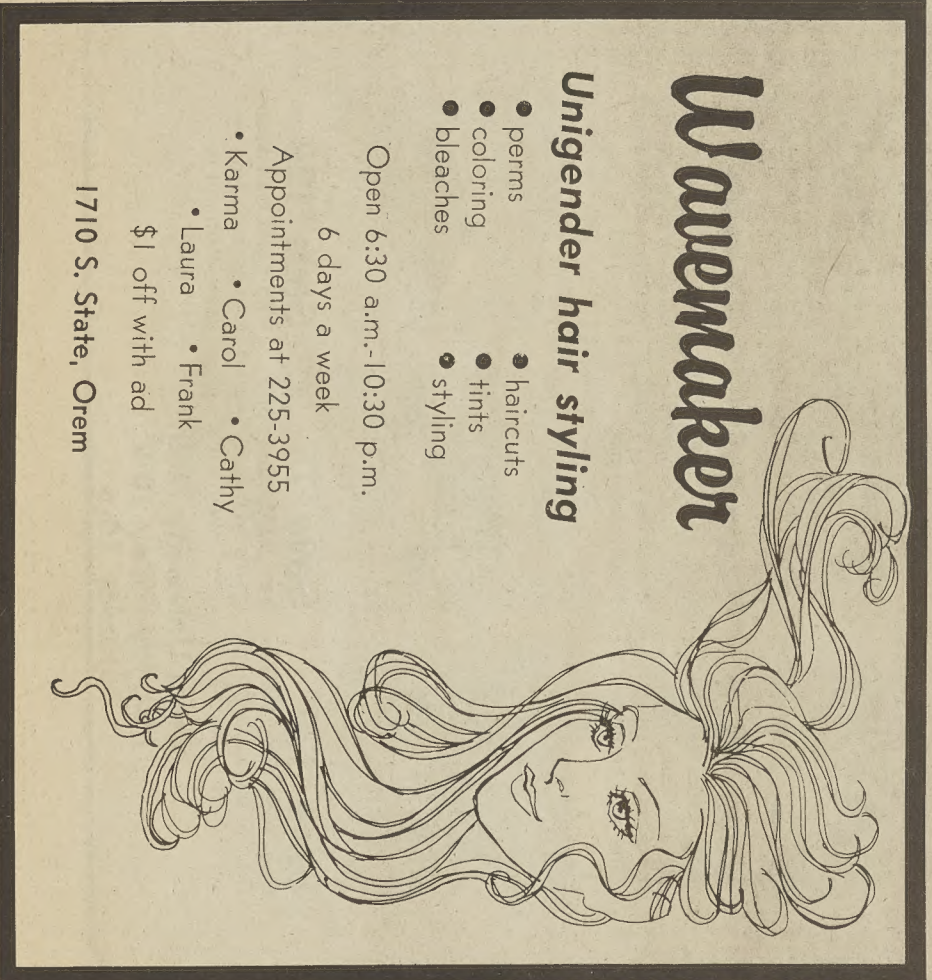 Wavemaker
Unigender hair styling
• perms • haircuts
• coloring • tints
• bleaches • styling
Open 6:30 a.m.-10:30 p.m.
6 days a week
Appointments at 225-3955
• Karma • Carol • Cathy
• Laura • Frank
$1 off with ad
1710 S. State, Orem